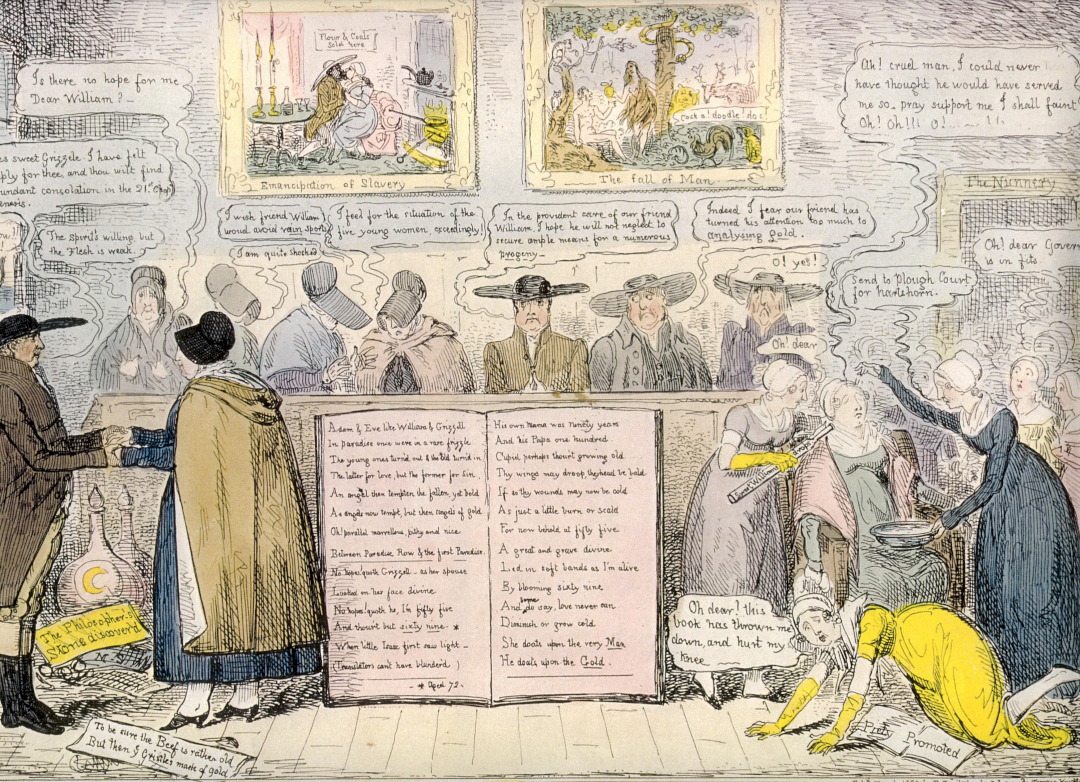 Is there no hope for me
Dear William? —
sweet Grizzele I have felt
for thee, and thou wilt find
consolation in the 21st Chap
The Spirit's willing but
the Flesh is weak.
Flour & Coals
Sold here
Emancipation of Slavery
Cock a! doodle! do!
The fall of Man
Ah! cruel man, I could never
have thought he would have served
me so — pray support me I shall faint
Oh! Oh!!! O!
The Nunnery
Oh! dear
is in fits
I wish friend William
would avoid vain sports
I am quite shock'd
I feel for the situation of the
five young women, exceedingly!
In the provident care of our friend
William, I hope he will not neglect to
secure ample means for a numerous
progeny —
Indeed I fear our friend has
turned his attention too much to
analysing Gold.
O! yes!
Send to Plough Court
for hartshorn.
Oh! dear
Adam & Eve like William & Grizzell
In paradise once were in a rare frizzle
The young ones turned out & the Old turned in
The latter for love, but the former for Sin.
An angel then tempted the fallen, yet bold
As angels now tempt, but then angels of gold
Oh! parallel marvellous, pithy and nice
Between Paradise Row & the first Paradise.
No hopes! quoth Grizzell — as her spouse
Looked on her face divine
No hopes! quoth he, I'm fifty five
And thou'rt but sixty nine. *
When little Isaac first saw light —
(Translators can't have blunder'd)
* Aged 72.
His own Mama was ninety years
And his Papa one hundred.
Cupid, perhaps thou'rt growing old
Thy wings may droop, thy head be bald
If so thy wounds may now be cold
As just a little burn or scald
For now behold at fifty five
A great and grave divine
Lied in soft bands as I'm alive
By blooming sixty nine
And some do say, love never can
Diminish or grow cold
She doats upon the very Man
He doats upon the Gold.
The Philosopher's
Stone discover'd
To be sure the Beef is rather old
But then y Gristle's made of gold
Oh dear! this
book has thrown me
down, and hurt my
Knee
Piety Promoted